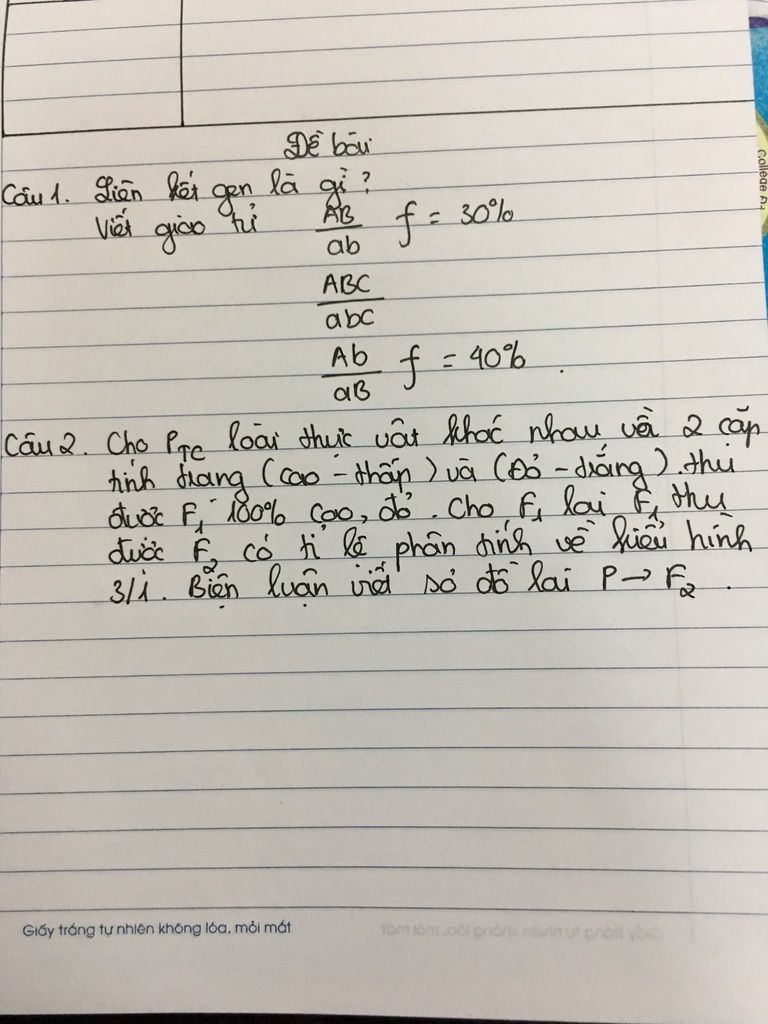 Đề bài
Câu 1. Liên kết gen là gì?
Viết giao tử AB/ab f = 30%
ABC/abC
Ab/aB f = 40%.
Câu 2. Cho PTC loài thực vật khác nhau về 2 cặp
tính trạng (cao - thấp) và (Đỏ - trắng). thu
được F1 100% cao, đỏ. Cho F1 lai F1 thu
được F2 có tỉ lệ phân tính về kiểu hình
3/1. Biện luận viết sơ đồ lai P → F2.
Giấy trắng tự nhiên không lóa, mỏi mắt
Giấy trắng tự nhiên không lóa, mỏi mắt